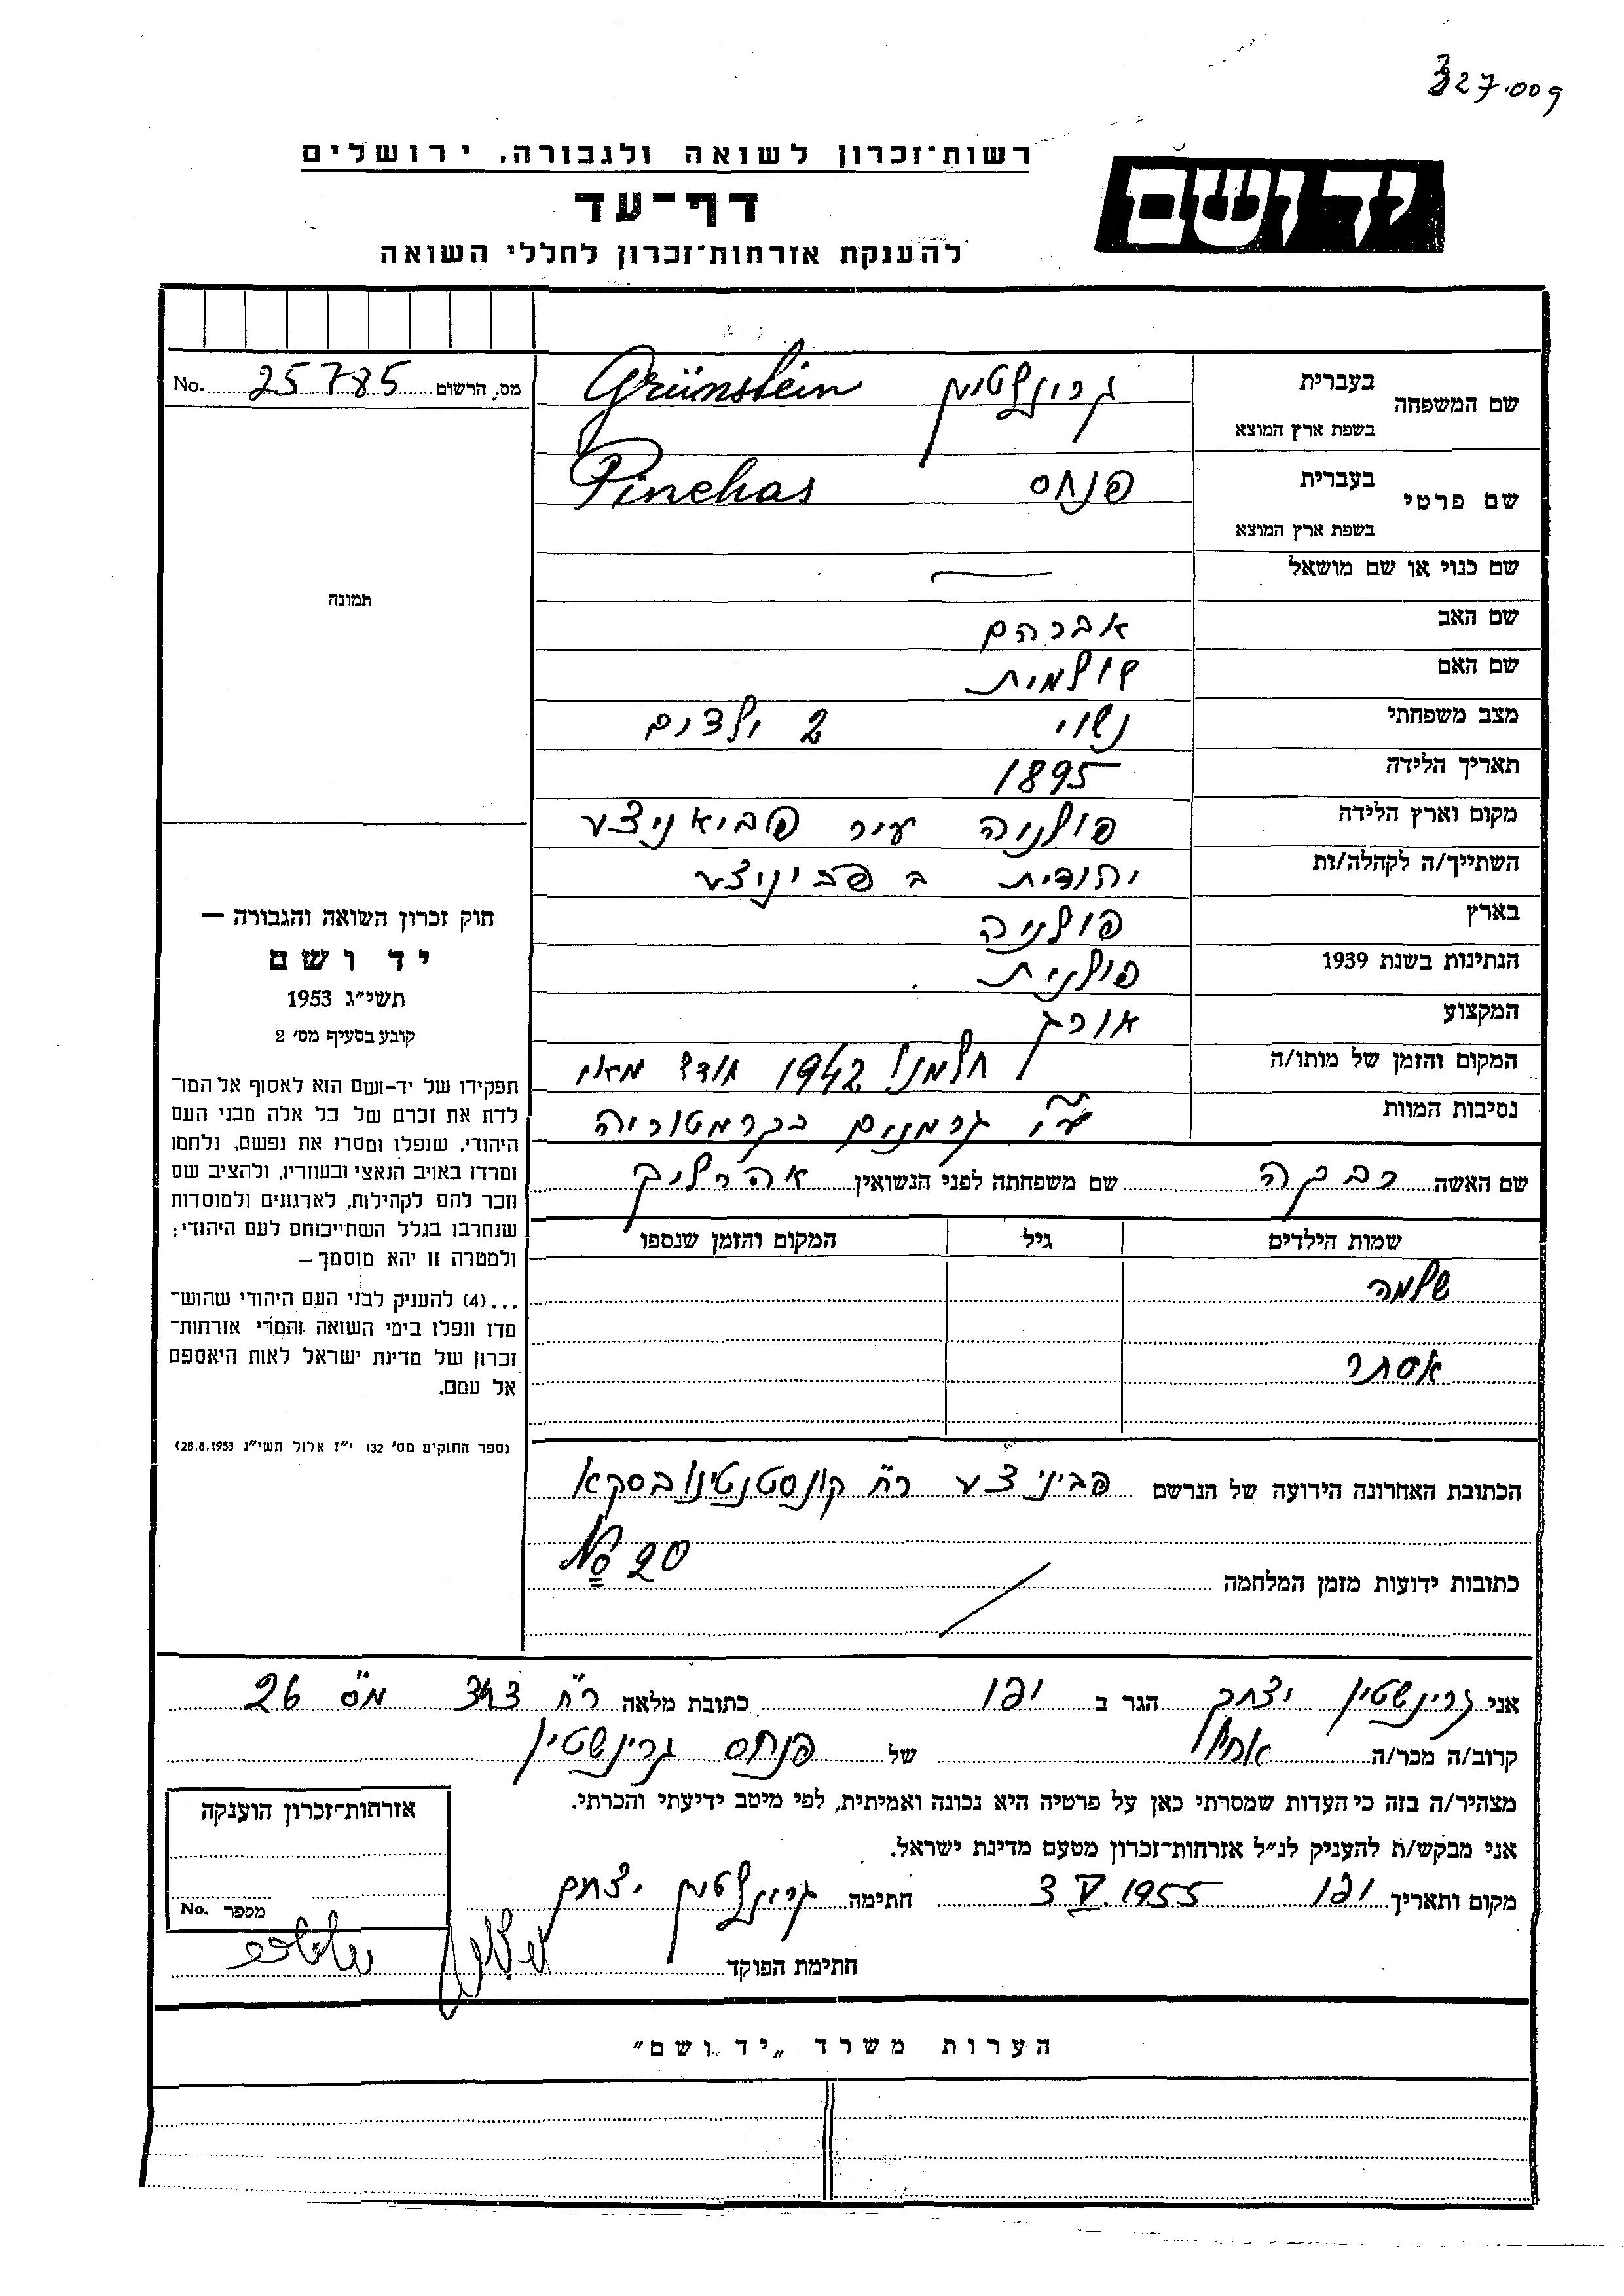 327.009
רשות־זכרון לשואה ולגבורה, ירושלים
יד ושם
דף־עד
להענקת אזרחות־זכרון לחללי השואה
מס, הרשום 25785 No.
תמונה
שם המשפחה בעברית בשפת ארץ המוצא גרינשטיין Grünstein
שם פרטי בעברית בשפת ארץ המוצא פנחס Pinchas
שם כנוי או שם מושאל —
שם האב אברהם
שם האם שולמית
מצב משפחתי נשוי 2 ילדים
תאריך הלידה 1895
מקום וארץ הלידה פולניה עיר פביאניצע
השתייך/ה לקהלה/ות יהודית ב פביניצע
בארץ פולניה
הנתינות בשנת 1939 פולנית
המקצוע אורג
המקום והזמן של מותו/ה חלמנו 1942 חודש מאי
נסיבות המוות ע"י גרמנים בקרמטוריה
שם האשה רבקה שם משפחתה לפני הנשואין אהרליך
שמות הילדים גיל המקום והזמן שנספו
שלמה
אסתר
הכתובת האחרונה הידועה של הנרשם פביניצע רח' קונסטנטינובסקא
№ 20
כתובות ידועות מזמן המלחמה
חוק זכרון השואה והגבורה —
יד ושם
תשי״ג 1953
קובע בסעיף מס׳ 2
תפקידו של יד-ושם הוא לאסוף אל המו־
לדת את זכרם של כל אלה מבני העם
היהודי, שנפלו ומסרו את נפשם, נלחמו
ומרדו באויב הנאצי ובעוזריו, ולהציב שם
וזכר להם לקהילות, לארגונים ולמוסדות
שנחרבו בגלל השתייכותם לעם היהודי;
ולמטרה זו יהא מוסמך —
...(4) להעניק לבני העם היהודי שהוש־
מדו ונפלו בימי השואה והמרי אזרחות־
זכרון של מדינת ישראל לאות היאספם
אל עמם.
(ספר החוקים מס׳ 132 י״ז אלול תשי״ג 28.8.1953)
אני גרינשטיין יצחק הגר ב יפו כתובת מלאה רח' 343 מס' 26
קרוב/ה מכר/ה של פנחס גרינשטיין
מצהיר/ה בזה כי העדות שמסרתי כאן על פרטיה היא נכונה ואמיתית, לפי מיטב ידיעתי והכרתי.
אני מבקש/ת להעניק לנ״ל אזרחות־זכרון מטעם מדינת ישראל.
מקום ותאריך יפו 3 V. 1955 חתימה גרינשטיין יצחק
חתימת הפוקד
אזרחות־זכרון הוענקה
מספר No.
הערות משרד „יד ושם״